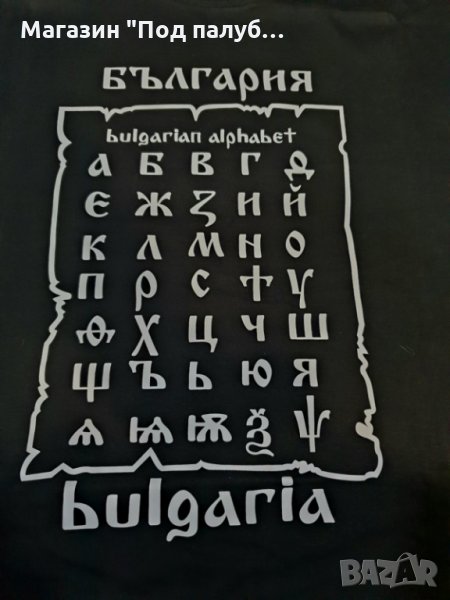 Магазин "Под палуб...
България
bulgarian alphabet
А Б В Г Д
Є Ж З И Й
К Л М Н О
П Р С Т У
Ф Х Ц Ч Ш
Щ Ъ Ь Ю Я
Ѧ Ѩ Ѭ Ѯ Ѱ
bulgaria
BAZAR